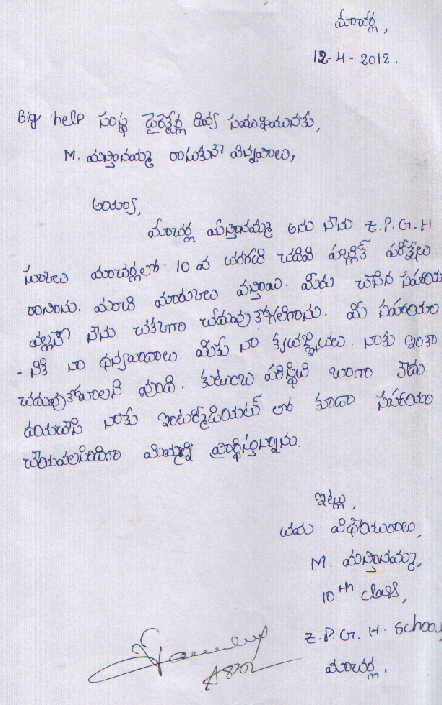 మాచర్ల,
12-4-2012.
Big help సంస్థ డైరెక్టర్ల దివ్య సముఖమునకు,
M. మస్తానమ్మ రాసుకునే విన్నపాలు,
అయ్యా,
మాచర్ల మస్తానమ్మ అను నేను Z.P.G.H
స్కూలు మాచర్లలో 10 వ తరగతి చదివి పబ్లిక్ పరీక్షలు
రాసాను. మంచి మార్కులు వస్తాయి. మీరు చేసిన సహాయం
వల్లనే నేను చక్కగా చదువుకోగలిగాను. మీ సహాయా
-నికి నా ధన్యవాదాలు మీకు నా కృతజ్ఞతలు. నాకు ఇంకా
చదువుకోవాలని వుంది. కుటుంబ పరిస్థితి బాగా లేదు
దయచేసి నాకు ఇంటర్మీడియట్ లో కూడా సహాయం
చేయవలసిందిగా మిమ్మల్ని ప్రార్థిస్తున్నాను.
ఇట్లు,
తమ విధేయురాలు,
M. మస్తానమ్మ,
10th class,
Z.P.G.H. School,
మాచర్ల.